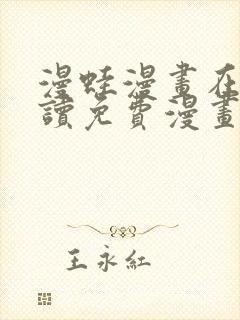 漫蛙漫畫在
讀免費漫畫
王永紅